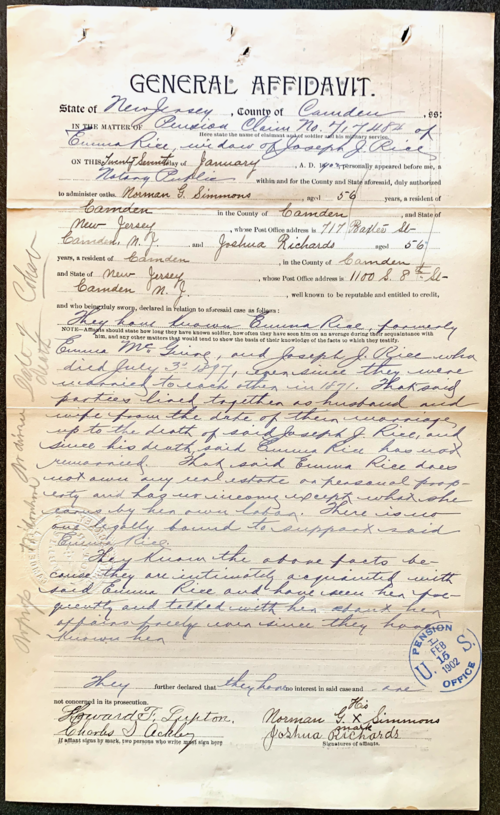 GENERAL AFFIDAVIT.
State of New Jersey, County of Camden, ss:
IN THE MATTER OF Pension Claim No. of
Here state name of claimant and of soldier and his military service.
Emma Rice, widow of Joseph J. Rice
ON THIS day of January, A. D. personally appeared before me, a
Notary Public within and for the County and State aforesaid, duly authorized
to administer oaths Norman G. Simmons aged 56 years, a resident of
Camden in the County of Camden, and State of
New Jersey, whose Post Office address is 717 St
Camden N. J. and Joshua Richards aged 56
years, a resident of Camden, in the County of Camden
and State of New Jersey, whose Post Office address is 1100 S. 8th St
Camden N. J., well known to be reputable and entitled to credit,
and who being duly sworn, declared in relation to aforesaid case as follows:
They have known Emma Rice, formerly
NOTE—Affiants should state how long they have known soldier, how often they have seen him on an average during their acquaintance with
him, and any other matters that would tend to show the basis of their knowledge of the facts to which they testify.
Emma and Joseph J. Rice who
died July 3d 1897, ever since they were
married to each other in 1871. That said
parties lived together as husband and
wife from the date of their marriage
up to the death of said Joseph J. Rice, and
since his death, said Emma Rice has not
remarried. That said Emma Rice does
not own any real estate or personal prop-
erty and has no income except what she
earns by her own labor. There is no
one legally bound to support said
Emma Rice.
They know the above facts be-
cause they are intimately acquainted with
said Emma Rice and have seen her fre-
quently and talked with her about her
affairs freely ever since they have
known her
They further declared that they have no interest in said case and are
not concerned in its prosecution.
Howard F. Tipton.
Charles S. Ackley
If affiant signs by mark, two persons who write must sign here
His
Norman G. X Simmons
mark
Joshua Richards
Signatures of affiants.
PENSION
FEB
15
1902
U. S.
OFFICE
death